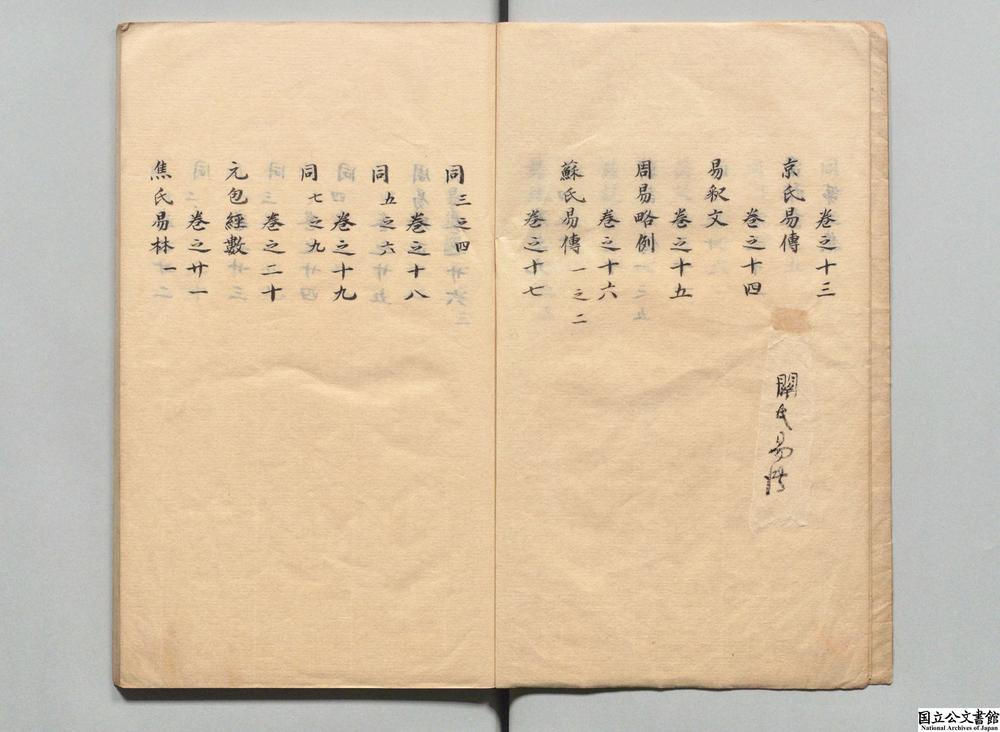 巻之十三
京氏易傳
巻之十四
易釈文
巻之十五
周易略例
巻之十六
蘇氏易傳 一之二
巻之十七
關氏易傳
同 三之四
巻之十八
同 五之六
巻之十九
同 七之九
巻之二十
元包經數
巻之廿一
焦氏易林 一
国立公文書館
National Archives of Japan